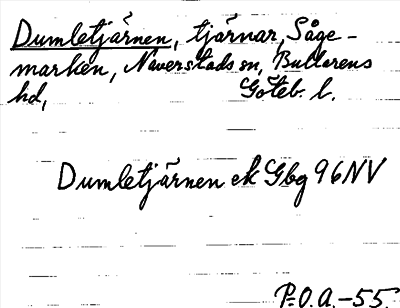 Dumletjärnen, tjärnar, Såge-
marken, Naverstads sn, Bullarens
hd, Göteb. l.
Dumletjärnen ek Gbg 96NV
P.O.A.-55.